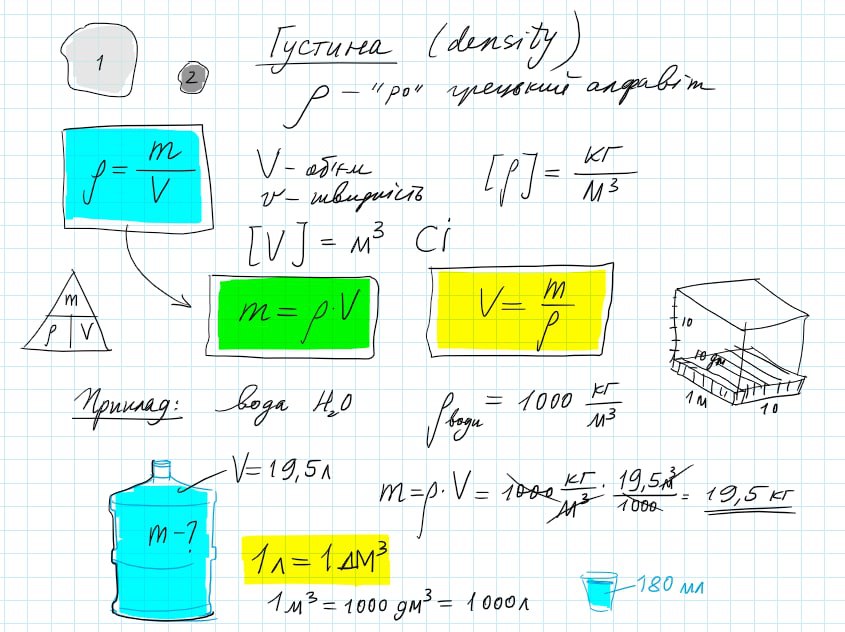 1
2
Густина (density)
ρ – "ро" грецький алфавіт
ρ = m/V
V – об'єм
v – швидкість
[ρ] = кг/м³
[V] = м³ Сі
m
ρ V
m = ρ·V
V = m/ρ
10
10 дм
1 м
10
Приклад: вода H₂O
ρводи = 1000 кг/м³
V = 19,5 л
m - ?
m = ρ·V = 1000 кг/м³ · 19,5 м³/1000 = 19,5 кг
1 л = 1 дм³
1 м³ = 1000 дм³ = 1000 л
180 мл